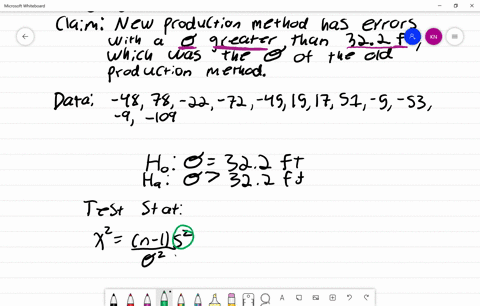 Microsoft Whiteboard
Claim: New production method has errors
with a σ greater than 32.2 ft,
which was the σ of the old
production method.
KN
Data: -48, 78, -22, -72, -45, 15, 17, 51, -5, -53,
-9, -109
H₀: σ = 32.2 ft
Hₐ: σ > 32.2 ft
Test Stat:
χ² = (n-1)s²
σ²